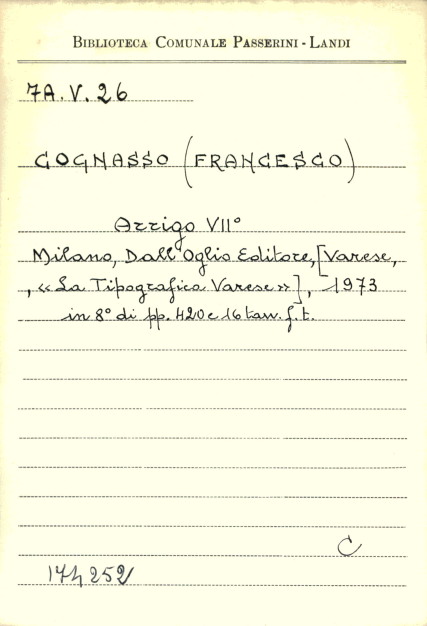 BIBLIOTECA COMUNALE PASSERINI - LANDI
7A.V.26
COGNASSO (FRANCESCO)
Arrigo VII°
Milano, Dall'Oglio Editore, [Varese,
, «La Tipografica Varese»], 1973
in 8° di pp. 420 e 16 tav. f.t.
C
174252